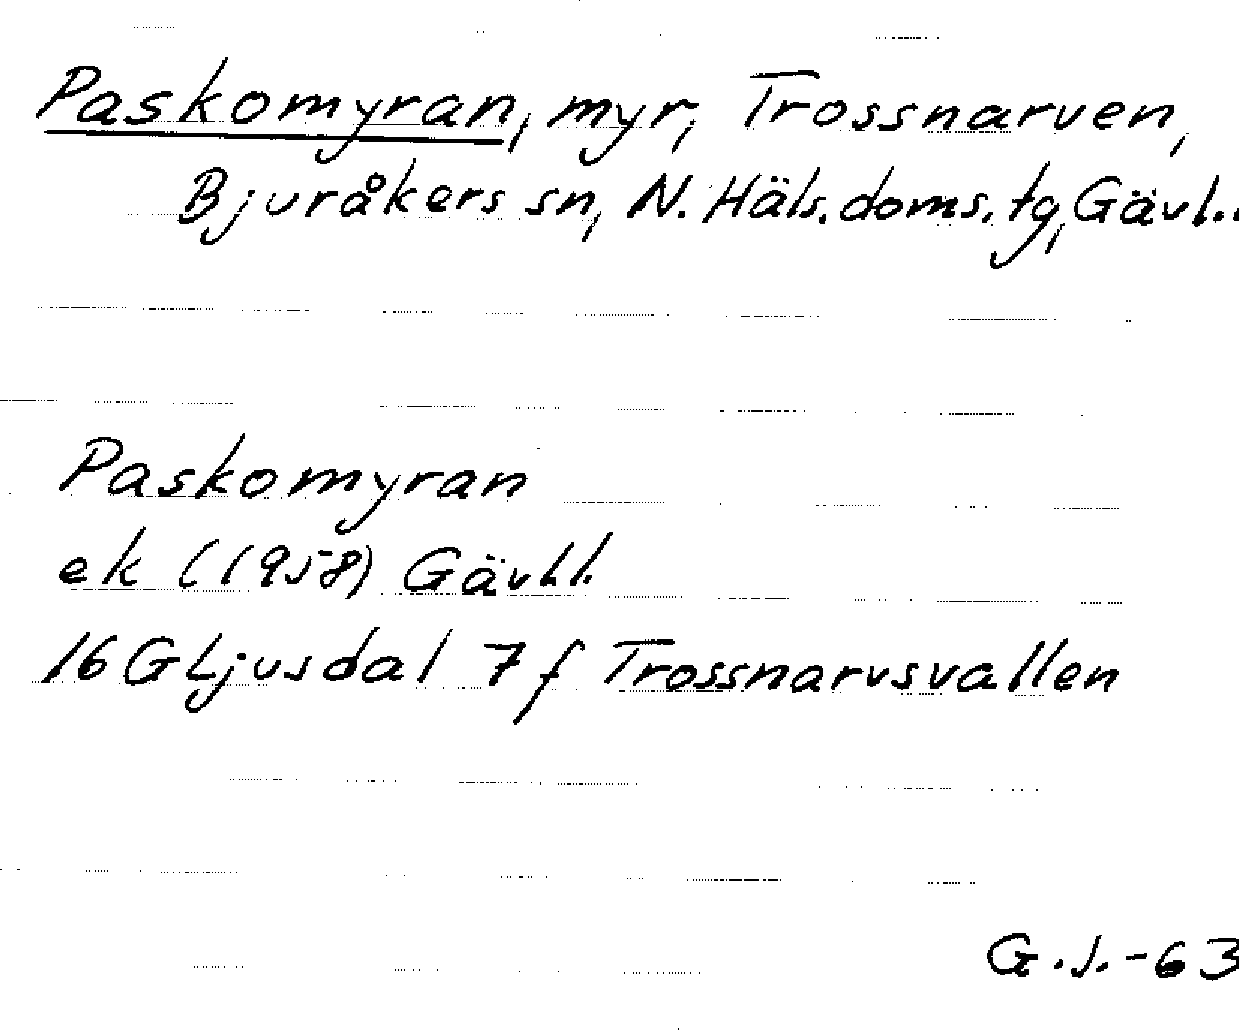 Paskomyran, myr, Trossnarven,
Bjuråkers sn, N. Häls. doms. tg, Gävl..
Paskomyran
ek (1958) Gävl.l.
16 G Ljusdal 7 f Trossnarvsvallen
G.J.-63